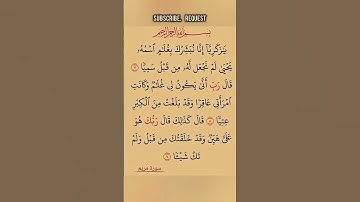 SUBSCRIBE, REQUEST
بسم الله الرحمن الرحيم
يَٰزَكَرِيَّآ إِنَّا نُبَشِّرُكَ بِغُلَٰمٍ ٱسْمُهُۥ
يَحْيَىٰ لَمْ نَجْعَل لَّهُۥ مِن قَبْلُ سَمِيًّا ٧
قَالَ رَبِّ أَنَّىٰ يَكُونُ لِى غُلَٰمٌ وَكَانَتِ
ٱمْرَأَتِى عَاقِرًا وَقَدْ بَلَغْتُ مِنَ ٱلْكِبَرِ
عِتِيًّا ٨ قَالَ كَذَٰلِكَ قَالَ رَبُّكَ هُوَ
عَلَىَّ هَيِّنٌ وَقَدْ خَلَقْتُكَ مِن قَبْلُ وَلَمْ
تَكُ شَيْـًٔا ٩
سورة مريم